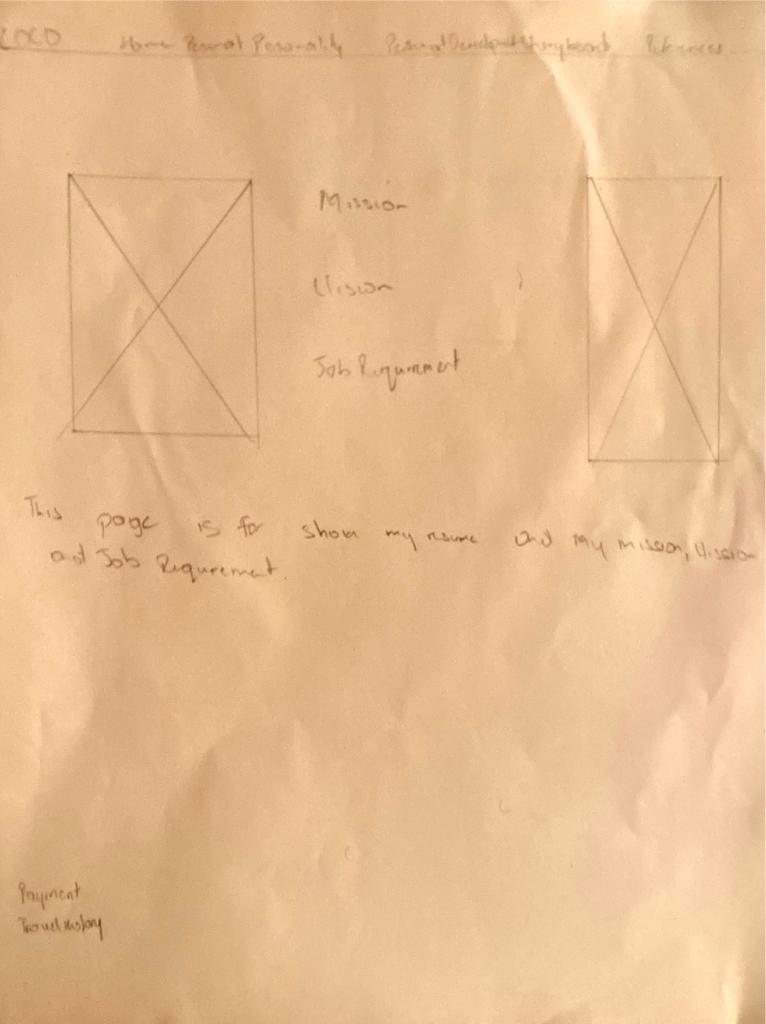 LOGO Home Personal Personality Personal Development Storyboard References
Mission
Vission
Job Requirement
This page is for show my resume and my mission, Vission
and Job Requrement.
Payment
Travel history